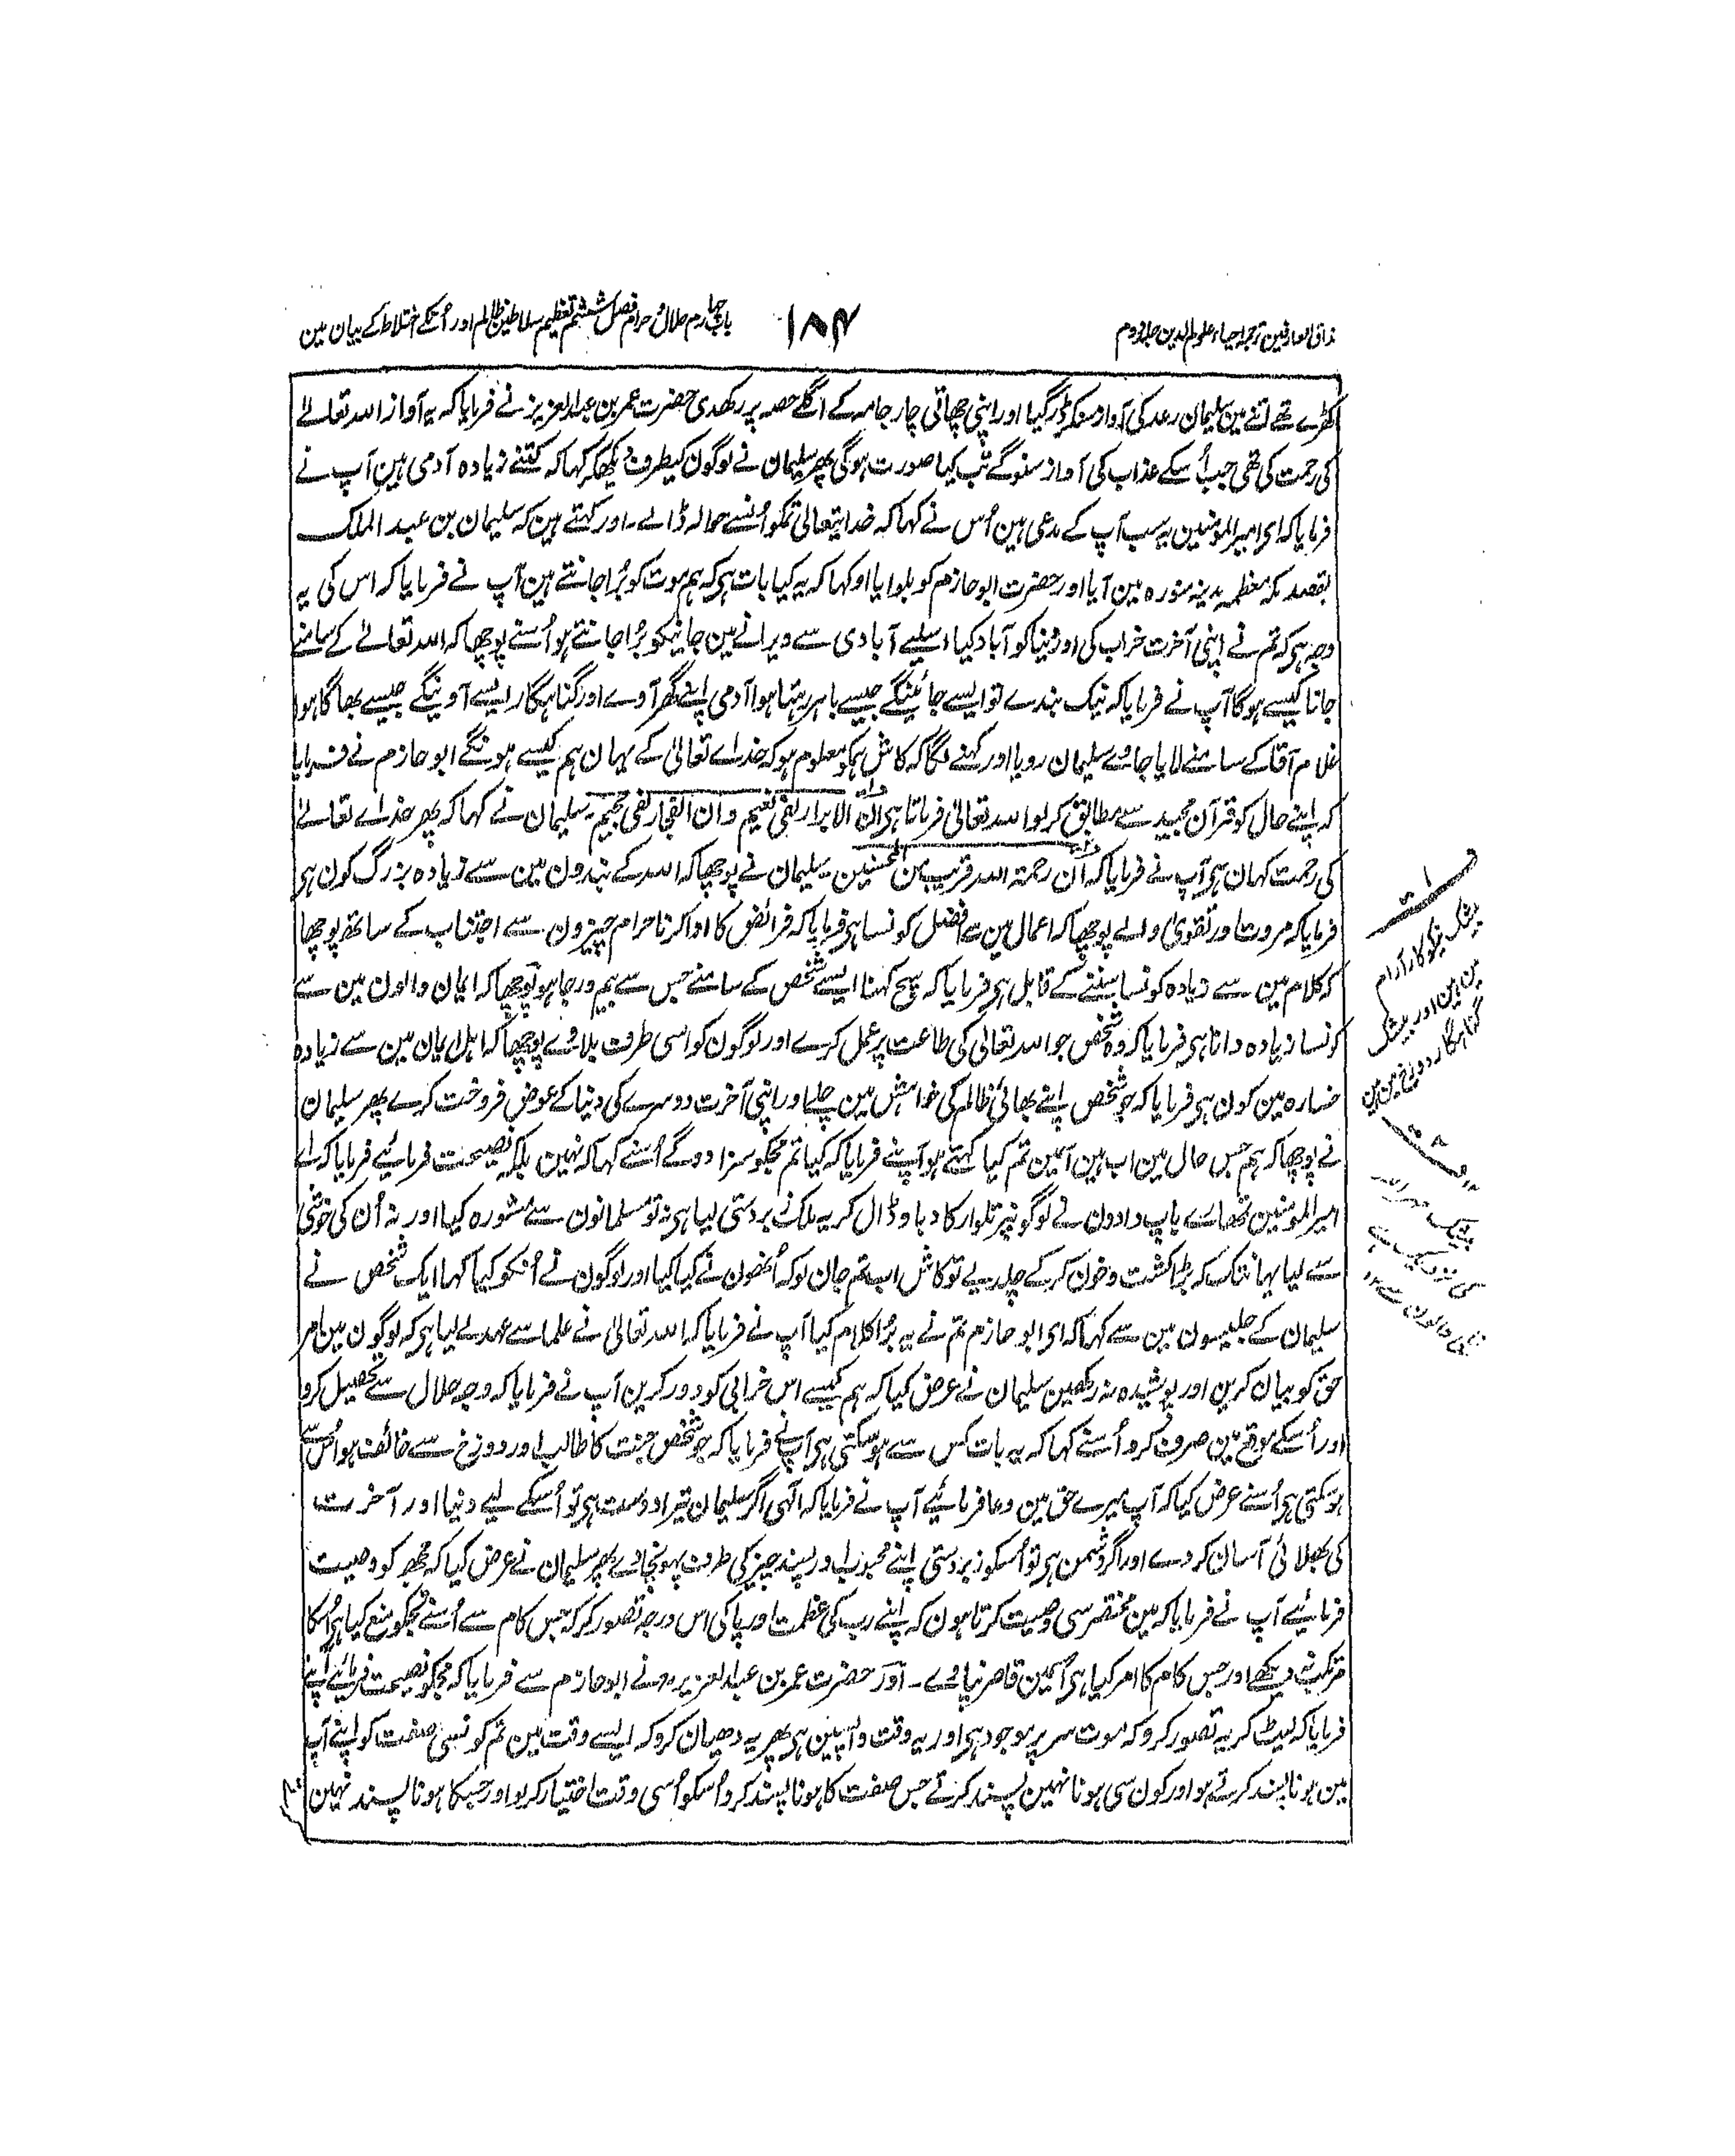 مذاق العارفین ترجمہ احیاء علوم الدین جلد دوم
۱۸۴
باب چہارم حلال و حرام فصل ششم تعظیم سلاطین ظالم اور اُنکے اختلاط کے بیان مین
کھڑے تھے اتنے مین سلیمان رعد کی آواز سنکر ڈر گیا اور اپنی چھاتی چار جامہ کے اگلے حصہ پر رکھدی حضرت عمر بن عبدالعزیز نے فرمایا کہ یہ آواز اللہ تعالےٰ
کی رحمت کی تھی جب اُسکے عذاب کی آواز سنوگے تب کیا صورت ہوگی پھر سلیمان نے لوگون کیطرف دیکھکر کہا کہ کتنے زیادہ آدمی ہین آپ نے
فرمایا کہ ای امیر المومنین یہ سب آپ کے مدعی ہین اُس نے کہا کہ خدایتعالیٰ تمکو اُنسے حوالہ ڈالے ۔ اور کہتے ہین کہ سلیمان بن عبد الملک
بقصد مکہ معظمہ مدینہ منورہ مین آیا اور حضرت ابو حازم کو بلوایا او کہا کہ یہ کیا بات ہی کہ ہم موت کو بُرا جانتے ہین آپ نے فرمایا کہ اس کی یہ
وجہ ہی کہ تم نے اپنی آخرت خراب کی اور دنیا کو آباد کیا اسلیے آبادی سے ویرانے مین جانیکو بُرا جانتے ہو اُسنے پوچھا کہ اللہ تعالےٰ کے سامنے
جانا کیسے ہوگا آپ نے فرمایا کہ نیک بندے تو ایسے جائینگے جیسے باہر رہتا ہوا آدمی اپنے گھر آوے اور گناہگار ایسے آوینگے جیسے بھاگا ہوا
غلام آقا کے سامنے لایا جاوے سلیمان رویا اور کہنے لگا کہ کاش ہمکو معلوم ہو کہ خداے تعالیٰ کے یہان ہم کیسے ہونگے ابو حازم نے فرمایا
کہ اپنے حال کو قرآن مجید سے مطابق کرلو اللہ تعالیٰ فرماتا ہی ان الابرار لفی نعیم و ان الفجار لفی جحیم ۔ سلیمان نے کہا کہ پھر خداے تعالےٰ
کی رحمت کہان ہی آپ نے فرمایا کہ ان رحمۃ اللہ قریب من المحسنین ۔ سلیمان نے پوچھا کہ اللہ کے بندون مین سے زیادہ بزرگ کون ہی
فرمایا کہ مروت اور تقویٰ والے پوچھا کہ اعمال مین سے افضل کونسا ہی فرمایا کہ فرائض کا ادا کرنا حرام چیزون سے اجتناب کے ساتھ پوچھا
کہ کلام مین سے زیادہ کونسا سننے کے قابل ہی فرمایا کہ سچ کہنا ایسے شخص کے سامنے جس سے بیم و رجا ہو پوچھا کہ ایمان والون مین سے
کونسا زیادہ دانا ہی فرمایا کہ وہ شخص جو اللہ تعالیٰ کی طاعت پر عمل کرے اور لوگون کو اسی طرف بلاوے پوچھا کہ اہل ایمان مین سے زیادہ
خسارہ مین کون ہی فرمایا کہ جو شخص اپنے بھائی ظالم کی خواہش مین چلے اور اپنی آخرت دوسرے کی دنیا کے عوض فروخت کرے پھر سلیمان
نے پوچھا کہ ہم جس حال مین اب ہین اسمین تم کیا کہتے ہو آپنے فرمایا کہ کیا تم مجکو سزا دوگے اُسنے کہا کہ نہین بلکہ نصیحت فرمائیے فرمایا کہ اے
امیر المومنین تمھارے باپ دادون نے لوگونپر تلوار کا دباو ڈال کر یہ ملک زبردستی لیا ہی نہ تو مسلمانون سے مشورہ کیا اور نہ اُن کی خوشی
سے لیا یہانتک کہ بڑا کشت و خون کرکے چلدیے تو کاش اب تم جان لو کہ اُنھون نے کیا کیا اور لوگون نے اُنکو کیا کہا ایک شخص نے
سلیمان کے جلیسون مین سے کہا کہ ای ابو حازم تم نے یہ بُرا کلام کیا آپ نے فرمایا کہ اللہ تعالیٰ نے علما سے عہد لے لیا ہی کہ لوگون مین امر
حق کو بیان کرین اور پوشیدہ نہ رکھین سلیمان نے عرض کیا کہ ہم کیسے اس خرابی کو دور کرین آپ نے فرمایا کہ وجہ حلال سے تحصیل کرو
اور اُسکے موقع مین صرف کرو اُسنے کہا کہ یہ بات کس سے ہوسکتی ہی آپنے فرمایا کہ جو شخص جنت کا طالب اور دوزخ سے خائف ہو اُس سے
ہوسکتی ہی اُسنے عرض کیا کہ آپ میرے حق مین دعا فرمائیے آپ نے فرمایا کہ الٰہی اگر سلیمان تیرا دوست ہی تو اُسکے لیے دنیا اور آخرت
کی بھلائی آسان کردے اور اگر دشمن ہی تو اُسکو زبردستی اپنے محبوب اور پسند چیز کی طرف پہونچادے پھر سلیمان نے عرض کیا کہ مجھ کو وصیت
فرمائیے آپ نے فرمایا کہ مین مختصر سی وصیت کرتا ہون کہ اپنے رب کی عظمت اور پاکی اس درجہ تصور کر کہ جس کام سے اُسنے تجکو منع کیا ہی اُسکا
مرتکب نہ دیکھے اور جس کام کا امر کیا ہی اُسمین قاصر نپاوے ۔ اور حضرت عمر بن عبدالعزیز رحہ نے ابو حازم سے فرمایا کہ مجکو نصیحت فرمائیے آپنے
فرمایا کہ لیٹ کر یہ تصور کرو کہ موت سر پر موجود ہی اور یہ وقت واپسین ہی پھر یہ دھیان کرو کہ ایسے وقت مین تم کونسی صفت کو اپنے آپ
مین ہونا پسند کرتے ہو اور کون سی ہونا نہین پسند کرتے جس صفت کا ہونا پسند کرو اُسکو اُسی وقت اختیار کرلو اور جسکا ہونا پسند نہین
بیشک نیکوکار آرام
مین ہین اور بیشک
گناہگار دوزخ مین ہین
بیشک